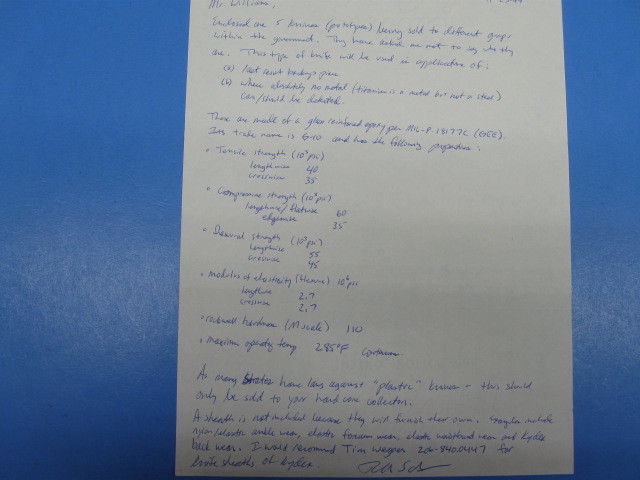 Mr. Williams,
Enclosed are 5 knives (prototypes) being sold to different groups
within the government. They have asked me not to say who they
are. This type of knife will be used in application of:
(a) last resort backup piece
(b) where absolutely no metal (titanium is a metal but not a steel)
can/should be detected.
These are made of a glass reinforced epoxy per MIL-P-18177C (GEE).
Its trade name is G-10 and has the following properties:
• Tensile strength (10³ psi)
lengthwise 40
crosswise 35
• Compressive strength (10³ psi)
lengthwise/flatwise 60
edgewise 35
• flexural strength (10³ psi)
lengthwise 55
crosswise 45
• modulus of elasticity (flexure) 10⁶ psi
lengthwise 2.7
crosswise 2.7
• rockwell hardness (M scale) 110
• maximum operating temp 285°F continuous
As many states have laws against "plastic" knives - this should
only be sold to your hard core collectors.
A sheath is not included because they will furnish their own. include
nylon/elastic ankle wear, elastic forearm wear, elastic waistband wear and kydex
neck wear. I would recommend Tim Wegner for
sheaths of kydex.